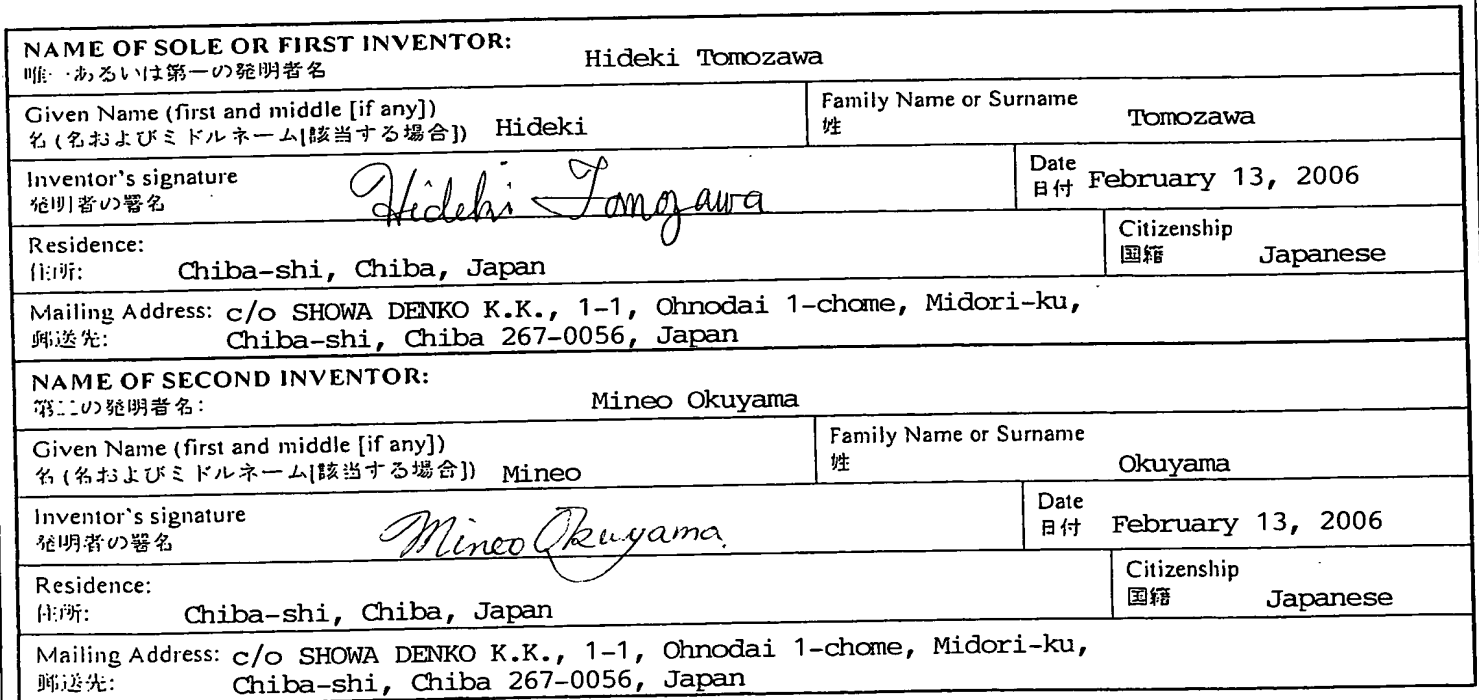 NAME OF SOLE OR FIRST INVENTOR:
唯一あるいは第一の発明者名
Hideki Tomozawa
Given Name (first and middle [if any])
名 (名およびミドルネーム[該当する場合]) Hideki
Family Name or Surname
姓
Tomozawa
Inventor's signature
発明者の署名
Hideki Tomozawa
Date
日付 February 13, 2006
Residence:
住所: Chiba-shi, Chiba, Japan
Citizenship
国籍 Japanese
Mailing Address: c/o SHOWA DENKO K.K., 1-1, Ohnodai 1-chome, Midori-ku,
郵送先: Chiba-shi, Chiba 267-0056, Japan
NAME OF SECOND INVENTOR:
第二の発明者名:
Mineo Okuyama
Given Name (first and middle [if any])
名 (名およびミドルネーム[該当する場合]) Mineo
Family Name or Surname
姓
Okuyama
Inventor's signature
発明者の署名
Mineo Okuyama
Date
日付 February 13, 2006
Residence:
住所: Chiba-shi, Chiba, Japan
Citizenship
国籍 Japanese
Mailing Address: c/o SHOWA DENKO K.K., 1-1, Ohnodai 1-chome, Midori-ku,
郵送先: Chiba-shi, Chiba 267-0056, Japan